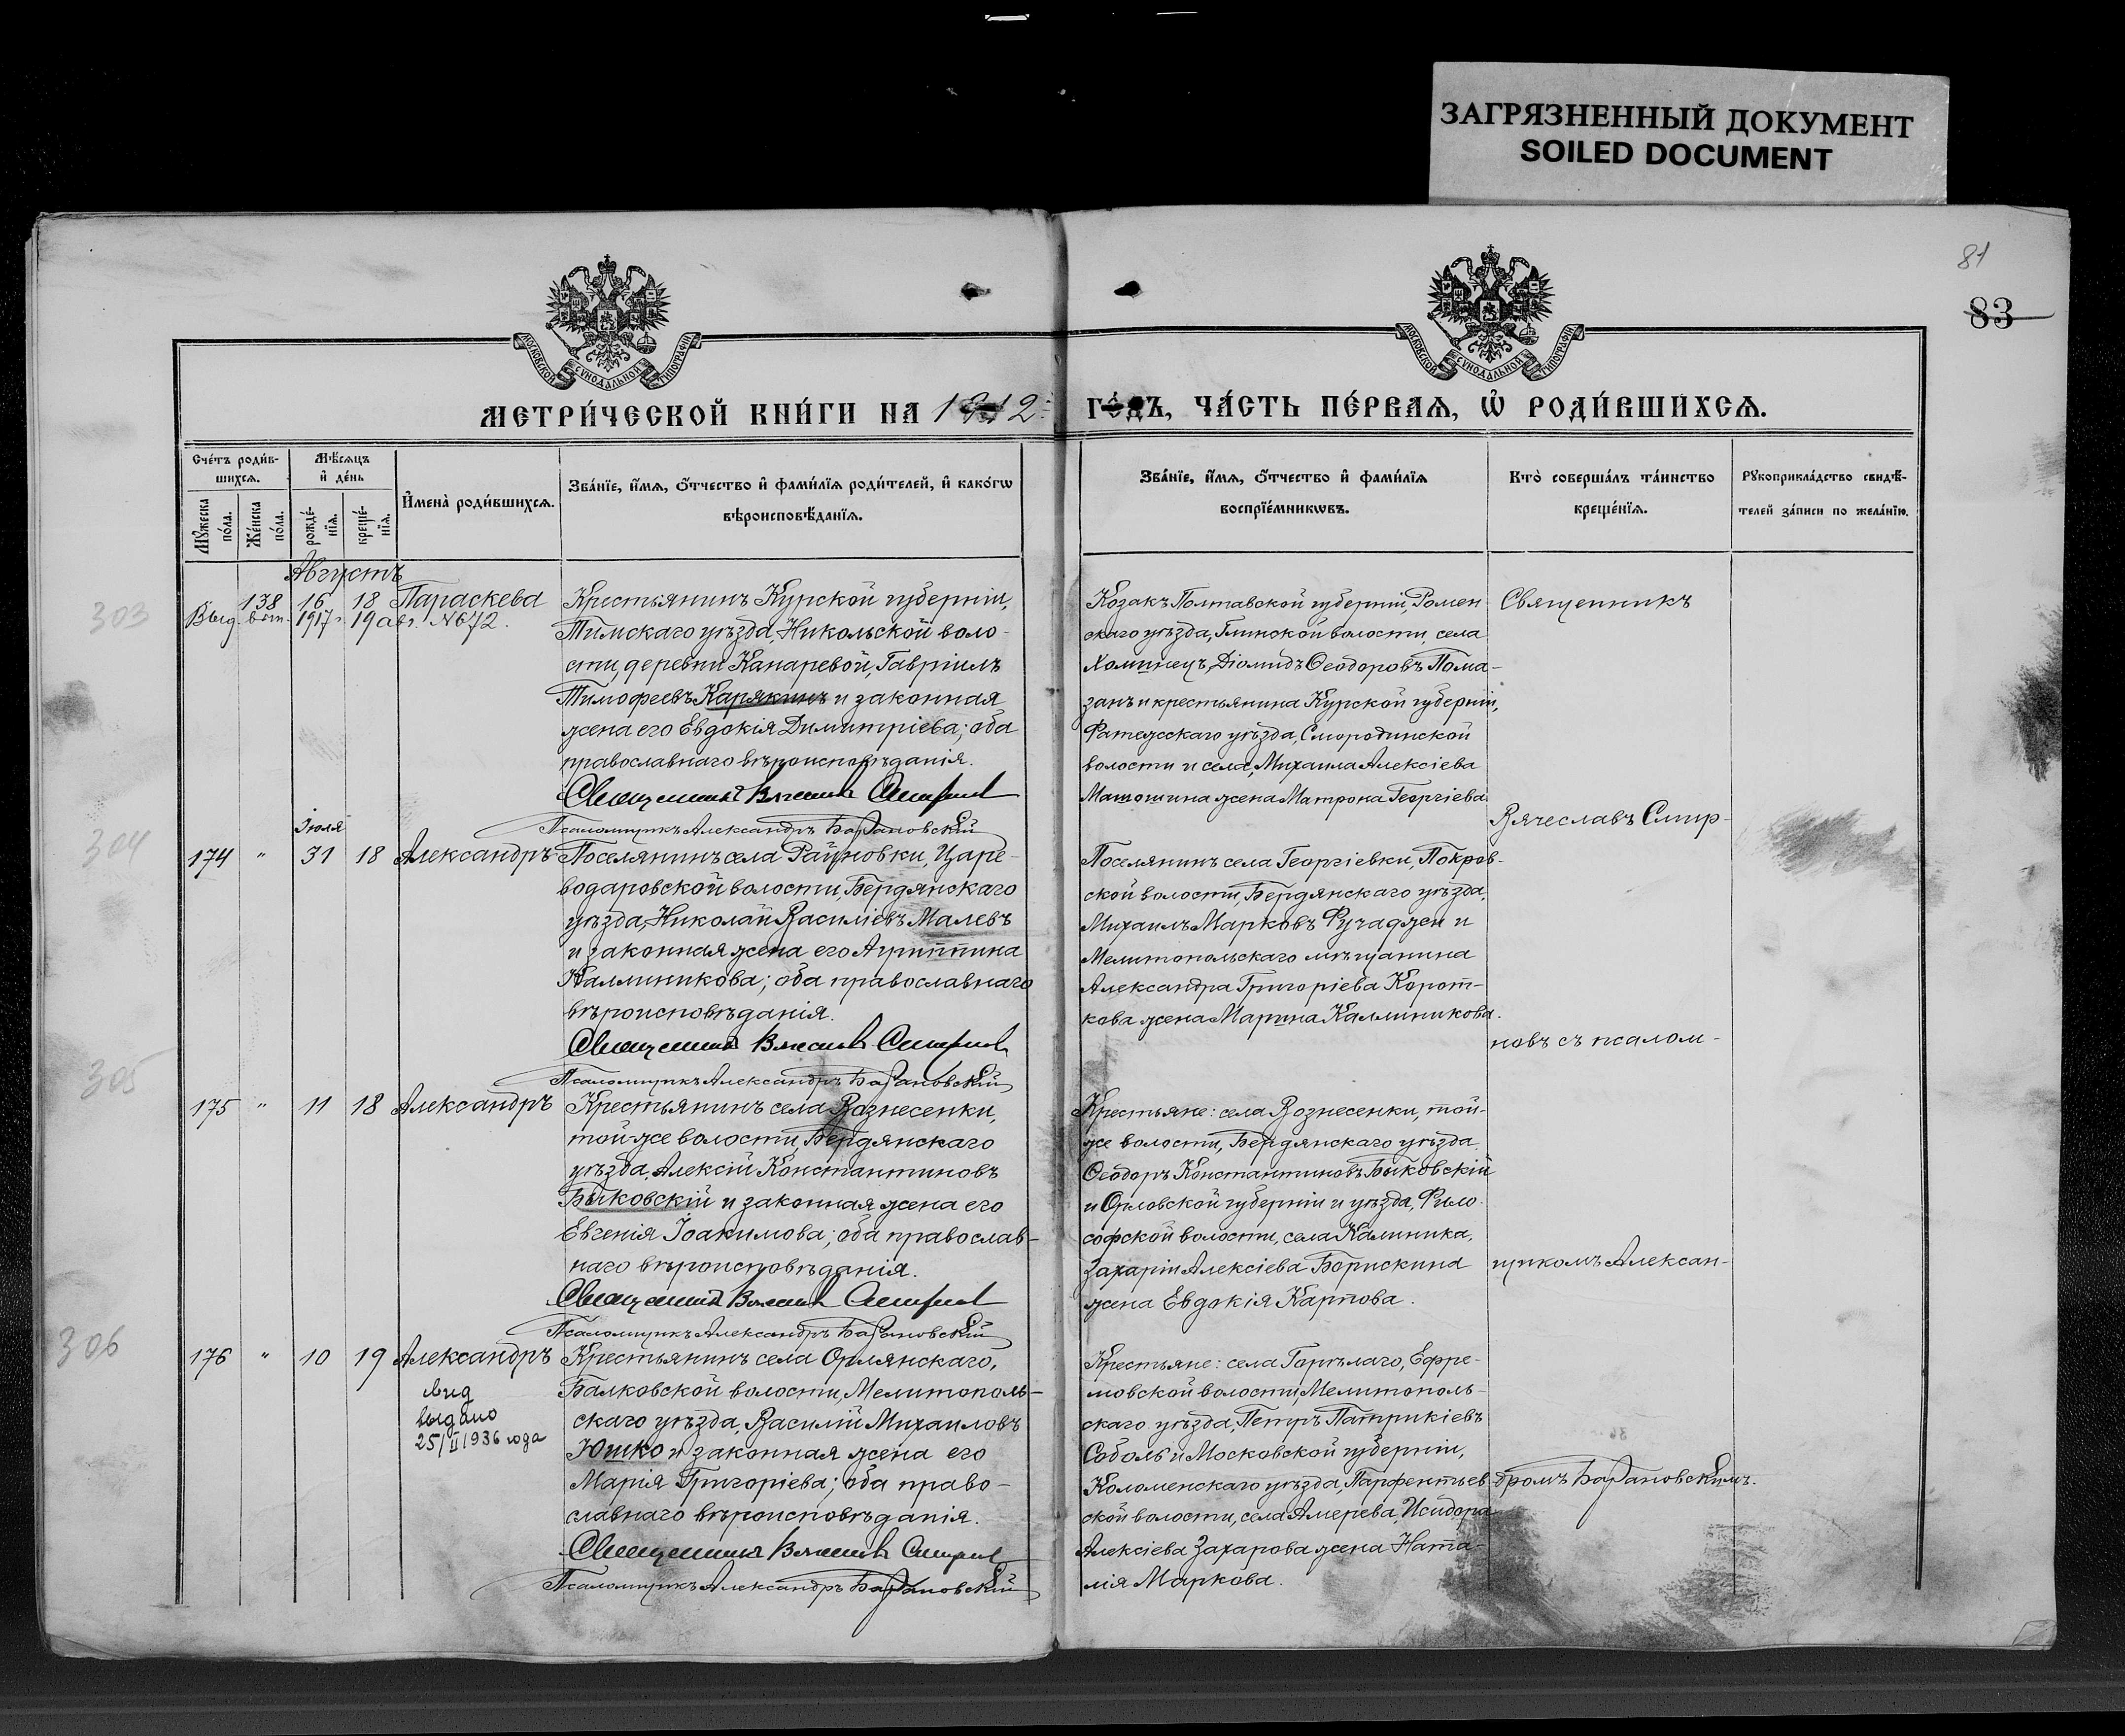 ЗАГРЯЗНЕННЫЙ ДОКУМЕНТ
SOILED DOCUMENT
81
83
МОСКОВСКОЙ СУНОДАЛЬНОЙ ТИПОГРАФІИ
МОСКОВСКОЙ СУНОДАЛЬНОЙ ТИПОГРАФІИ
МЕТРИ́ЧЕСКОЙ КНИ́ГИ НА 1912 ГО́ДЪ, ЧА́СТЬ ПЕ́РВАЯ, Ѡ РОДИ́ВШИХСЯ.
Сче́тъ роди́в-
шихся.
Мѣ́сяцъ
и де́нь
Мꙋ́жеска по́ла.
Же́нска по́ла.
рожде́-
нїя.
креще́-
нїя.
Имена̀ роди́вшихся.
Зва́нїе, и́мя, ѻ́тчество и фами́лїя роди́телей, и како́гѡ
вѣроисповѣ́данїя.
Зва́нїе, и́мя, ѻ́тчество и фами́лїя
воспрїе́мникѡвъ.
Кто̀ соверша́лъ та́инство
креще́нїя.
Рꙋкоприкла́дство свидѣ́-
телей за́писи по жела́нїю.
Августъ
303
138 16 18 Параскева
Выд. вып. 1917 г. 19 авг. № 672.
Крестьянинъ Курской губерніи,
Тимскаго уѣзда, Никольской воло-
сти, деревни Канаревой, Гавріилъ
Тимофеевъ Карякинъ и законная
жена его Евдокія Димитріева; оба
православнаго вѣроисповѣданія.
Священникъ Вячеславъ Смирновъ
Псаломщикъ Александръ Барановскій
Козакъ Полтавской губерніи, Ромен
скаго уѣзда, Глинской волости, села
Хоминецъ, Діомидъ Ѳеодоровъ Пома-
занъ и крестьянина Курской губерніи,
Фатежскаго уѣзда, Смородинской
волости и села, Михаила Алексіева
Матошина жена Матрона Георгіева
Священникъ
Вячеславъ Смир-
304
Іюля
174 " 31 18 Александръ
Поселянинъ села Райновки, Царе-
водаровской волости, Бердянскаго
уѣзда, Николай Василіевъ Малевъ
и законная жена его Агриппина
Каллиникова; оба православнаго
вѣроисповѣданія.
Священникъ Вячеславъ Смирновъ
Псаломщикъ Александръ Барановскій
Поселянинъ села Георгіевки, Покров-
ской волости, Бердянскаго уѣзда,
Михаилъ Марковъ Фучаджи и
Мелитопольскаго мѣщанина
Александра Григоріева Корот-
кова жена Марина Каллиникова.
новъ съ псалом-
305
175 " 11 18 Александръ
Крестьянинъ села Вознесенки,
той-же волости, Бердянскаго
уѣзда, Алексій Константиновъ
Быковскій и законная жена его
Евгенія Іоакимова; оба православ-
наго вѣроисповѣданія.
Священникъ Вячеславъ Смирновъ
Псаломщикъ Александръ Барановскій
Крестьяне: села Вознесенки, той-
же волости, Бердянскаго уѣзда
Ѳеодоръ Константиновъ Быковскій
и Орловской губерніи и уѣзда, Фило
софской волости, села Калиника,
Захаріи Алексіева Борискина
жена Евдокія Карпова.
щикомъ Алексан-
306
176 " 10 19 Александръ
вид
выдано
25/II 1936 года
Крестьянинъ села Орлянскаго,
Балковской волости, Мелитополь-
скаго уѣзда, Василій Михаиловъ
Юшко и законная жена его
Марія Григоріева; оба право-
славнаго вѣроисповѣданія.
Священникъ Вячеславъ Смирновъ
Псаломщикъ Александръ Барановскій
Крестьяне: села Горѣлаго, Ефре-
мовской волости, Мелитополь-
скаго уѣзда, Петръ Патрикіевъ
Соболь и Московской губерніи,
Коломенскаго уѣзда, Парфентьев
ской волости, села Амерева, Исидора
Алексіева Захарова жена Ната-
лія Маркова.
дромъ Барановскимъ.